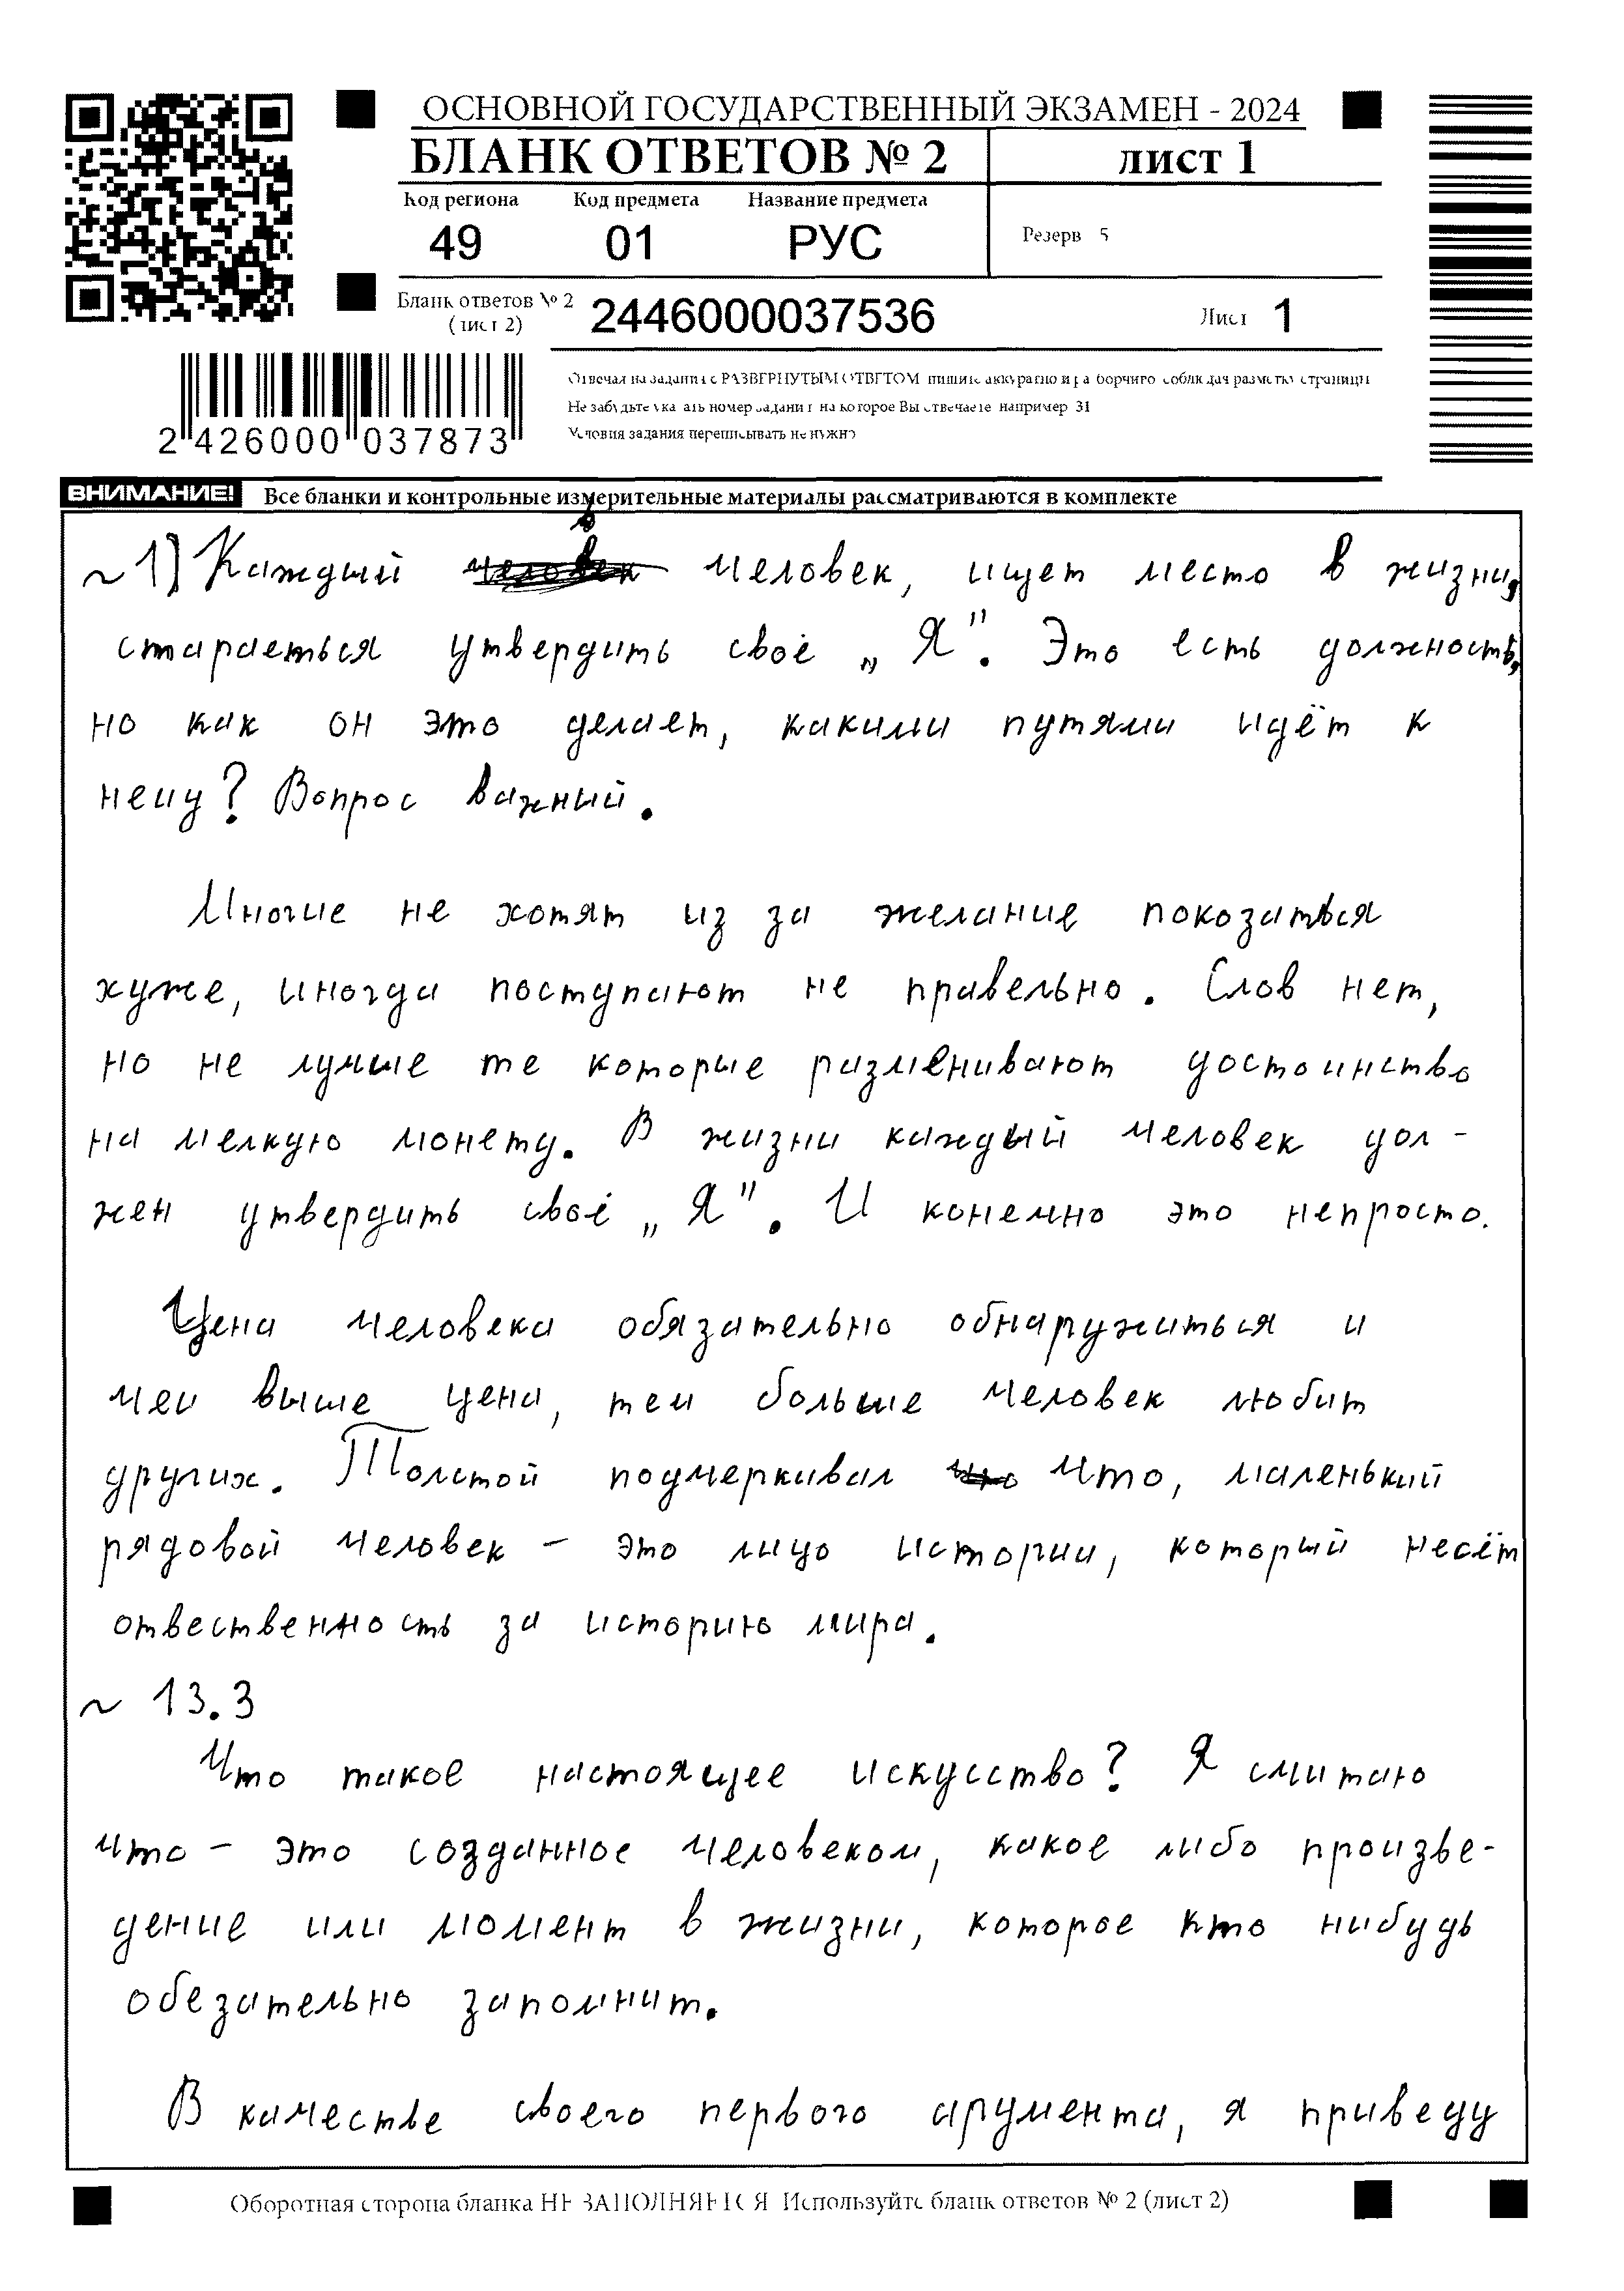 ОСНОВНОЙ ГОСУДАРСТВЕННЫЙ ЭКЗАМЕН - 2024
БЛАНК ОТВЕТОВ № 2
лист 1
Код региона
Код предмета
Название предмета
49
01
РУС
Резерв 5
Бланк ответов № 2
(лист 2)
2446000037536
Лист 1
2 426000 037873
Отвечая на задания с РАЗВЕРНУТЫМ ОТВЕТОМ, пишите аккуратно и разборчиво, соблюдая разметку страницы
Не забудьте указать номер задания, на которое Вы отвечаете, например, 31
Условия задания переписывать не нужно
ВНИМАНИЕ!
Все бланки и контрольные измерительные материалы рассматриваются в комплекте
~1) Каждый человек человек, ищет место в жизни,
стараеться утвердить своё „Я". Это есть должность,
но как он это делает, какими путями идёт к
нему? Вопрос важный.
Многие не хотят из за желание покозаться
хуже, иногда поступают не правельно. Слов нет,
но не лучше те которые разменивают достоинство
на мелкую монету. В жизни каждый человек дол-
жен утвердить своё „Я". И конечно это непросто.
Цена человека обязательно обнаружиться и
чем выше цена, тем больше человек любит
других. Толстой подчеркивал что что, маленький
рядовой человек - это лицо истории, который несёт
отвественность за историю мира.
~ 13.3
Что такое настоящее искусство? Я считаю
что - это созданное человеком, какое либо произве-
дение или момент в жизни, которое кто нибудь
обезательно запомнит.
В качестве своего первого арумента, я приведу
Оборотная сторона бланка НЕ ЗАПОЛНЯЕТСЯ. Используйте бланк ответов № 2 (лист 2)